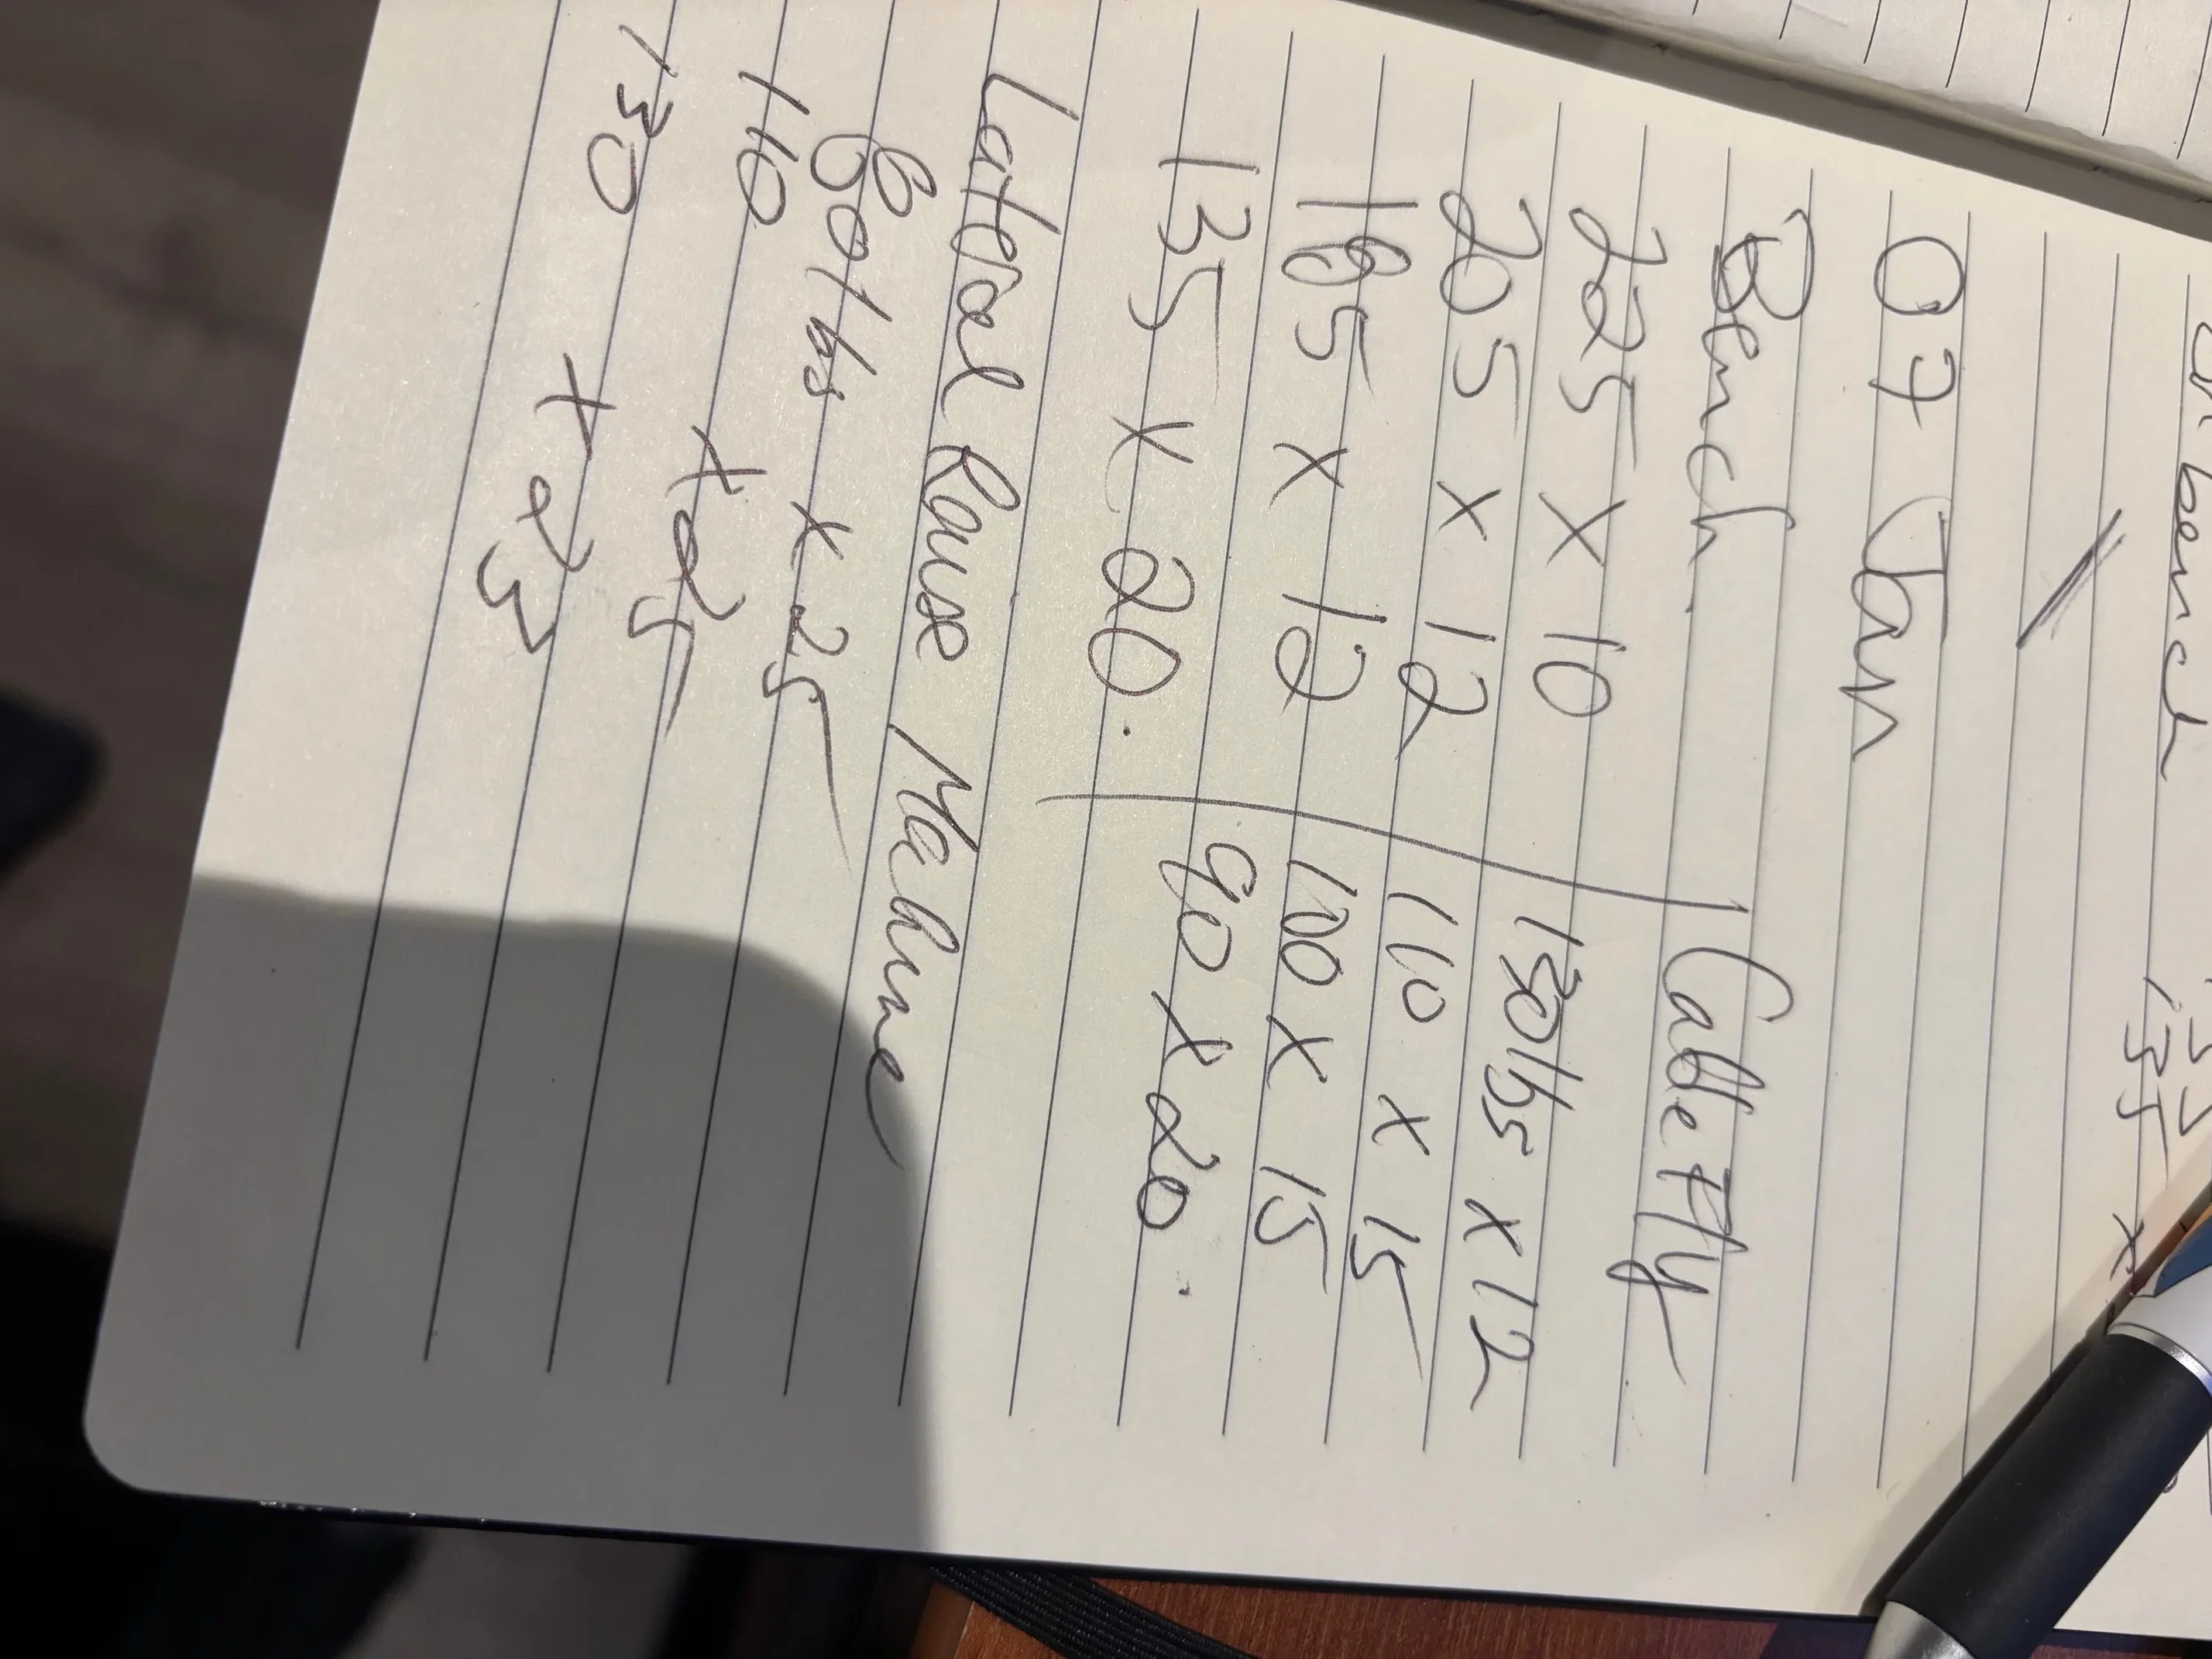 bench
135 x
07 Jan
Bench
225 x 10
205 x 12
185 x 12
135 x 20.
Cable Fly
x 12
110 x 15
100 x 15
90 x 20.
Lateral Raise Machine
x 25
110 x 25
130 x 23